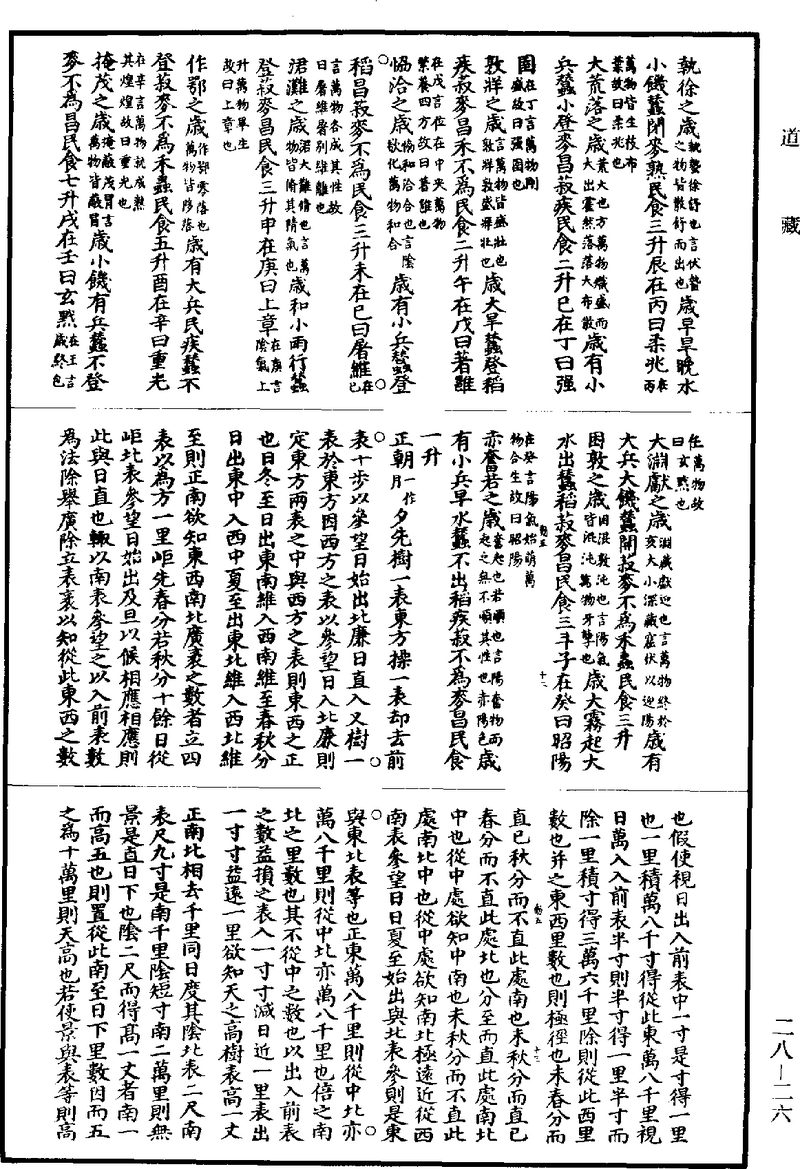 道藏
執徐之歲執蟄徐舒也言伏蟄之物皆散舒而出也歲早旱晚水
小饑蠶閉麥熟民食三升辰在丙曰柔兆在丙
萬物皆生枝布葉故曰柔兆也
大荒落之歲荒大也方萬物熾盛而大出霍然落落大布散歲有小
兵蠶小登麥昌菽疾民食二升巳在丁曰强
圉在丁言萬物剛盛故曰强圉也
敦牂之歲言萬物皆盛壯也敦牂敦盛牂壯也歲大旱蠶登稻
疾菽麥昌禾不為民食二升午在戊曰著雝
在戊言位在中央萬物繁養四方故曰著雝也
協洽之歲協和洽合也言陰欲化萬物和合歲有小兵蠶登
稻昌菽麥不為民食三升未在己曰屠維在己
言萬物各成其性故曰屠維屠別維離也
涒灘之歲涒大灘脩也言萬物皆脩其精氣也歲和小雨行蠶
登菽麥昌民食三升申在庚曰上章在庚言陰氣上
升萬物畢生故曰上章也
作鄂之歲作鄂零落也萬物皆陊落歲有大兵民疾蠶不
登菽麥不為禾蟲民食五升酉在辛曰重光
在辛言萬物就成熟其煌煌故曰重光也
掩茂之歲掩蔽茂冒言萬物皆蔽冒歲小饑有兵蠶不登
麥不為昌民食七升戌在壬曰玄黓在壬言歲終包
任萬物故曰玄黓也
大淵獻之歲淵藏獻迎也言萬物終於亥大小深藏窟伏以迎陽歲有
大兵大饑蠶開菽麥不為禾蟲民食三升
困敦之歲困混敦沌也言陽氣皆混沌萬物牙孽也歲大霧起大
水出蠶稻菽麥昌民食三斗子在癸曰昭陽
在癸言陽氣始萌萬物合生故曰昭陽
赤奮若之歲奮起也若順也言陽奮物而起之無不順其性也赤陽色歲
有小兵早水蠶不出稻疾菽不為麥昌民食
一升
正朝一作月夕先樹一表東方操一表却去前
表十步以參望日始出北廉日直入又樹一
表於東方因西方之表以參望日入北廉則
定東方兩表之中與西方之表則東西之正
也日冬至日出東南維入西南維至春秋分
日出東中入西中夏至出東北維入西北維
至則正南欲知東西南北廣袤之數者立四
表以為方一里岠先春分若秋分十餘日從
岠北表參望日始出及旦以候相應相應則
此與日直也輒以南表參望之以入前表數
為法除舉廣除立表袤以知從此東西之數
也假使視日出入前表中一寸是寸得一里
也一里積萬八千寸得從此東萬八千里視
日萬入入前表半寸則半寸得一里半寸而
除一里積寸得三萬六千里除則從此西里
數也并之東西里數也則極徑也未春分而
直已秋分而不直此處南也未秋分而直已
春分而不直此處北也分至而直此處南北
中也從中處欲知中南也未秋分而不直此
處南北中也從中處欲知南北極遠近從西
南表參望日日夏至始出與北表參則是東
與東北表等也正東萬八千里則從中北亦
萬八千里則從中北亦萬八千里也倍之南
北之里數也其不從中之數也以出入前表
之數益損之表入一寸寸減日近一里表出
一寸寸益遠一里欲知天之高樹表高一丈
正南北相去千里同日度其陰北表二尺南
表尺九寸是南千里陰短寸南二萬里則無
景是直日下也陰二尺而得髙一丈者南一
而高五也則置從此南至日下里數因而五
之為十萬里則天高也若使景與表等則高
二八—二六